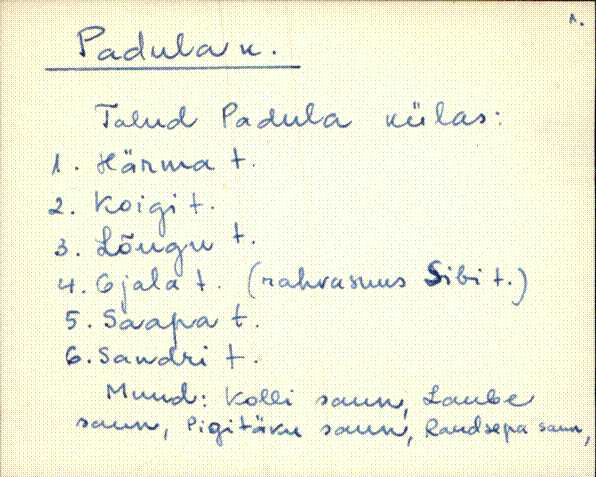 1.
Padula k.
Talud Padula külas:
1. Härma t.
2. Koigi t.
3. Lõugu t.
4. Ojala t. (rahvasuus Sibi t.)
5. Saapa t.
6. Sandri t.
Muud: Kolli saun, Laube
saun, Pigitäku saun, Raudsepa saun,